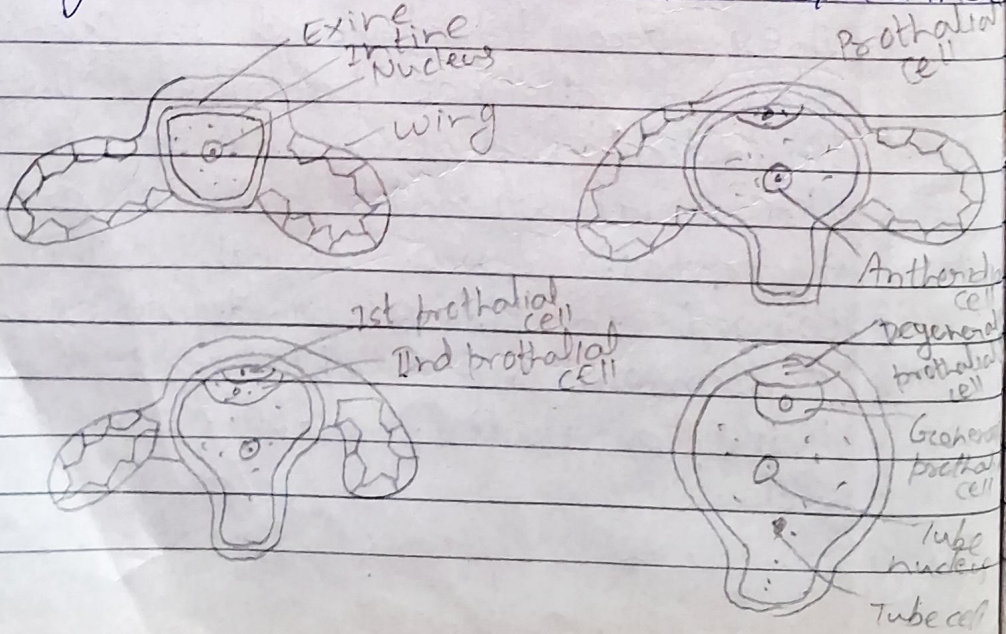 Exine
Intine
Nucleus
wing
Prothalial
cell
Antheridi
cell
1st prothalial
cell
IInd prothalial
cell
Degenerat
prothalial
cell
prothal
cell
Tube
nucleu
Tube cell